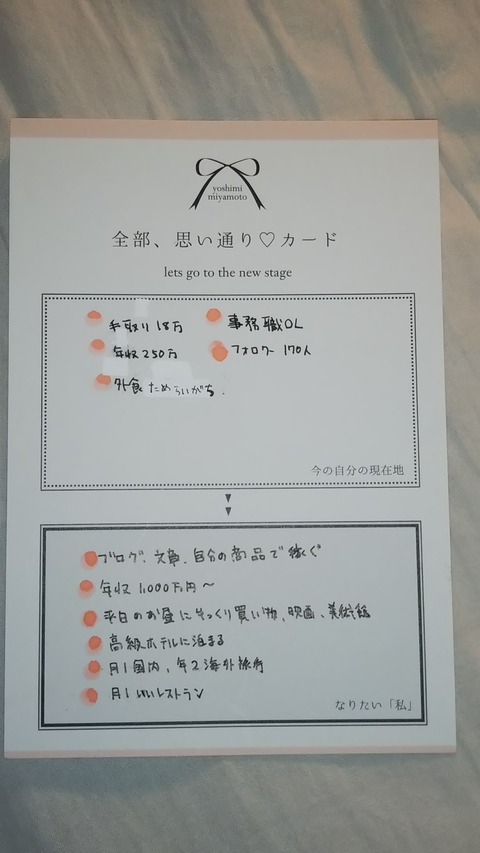 yoshimi
miyamoto
全部、思い通り♡カード
lets go to the new stage
手取り18万 事務職OL
年収250万 フォロワー170人
外食ためらいがち.
今の自分の現在地
ブログ、文章、自分の商品で稼ぐ
年収1,000万円～
平日のお昼にゆっくり買い物、映画、美術館
高級ホテルに泊まる
月1国内、年2海外旅行
月1いいレストラン
なりたい「私」